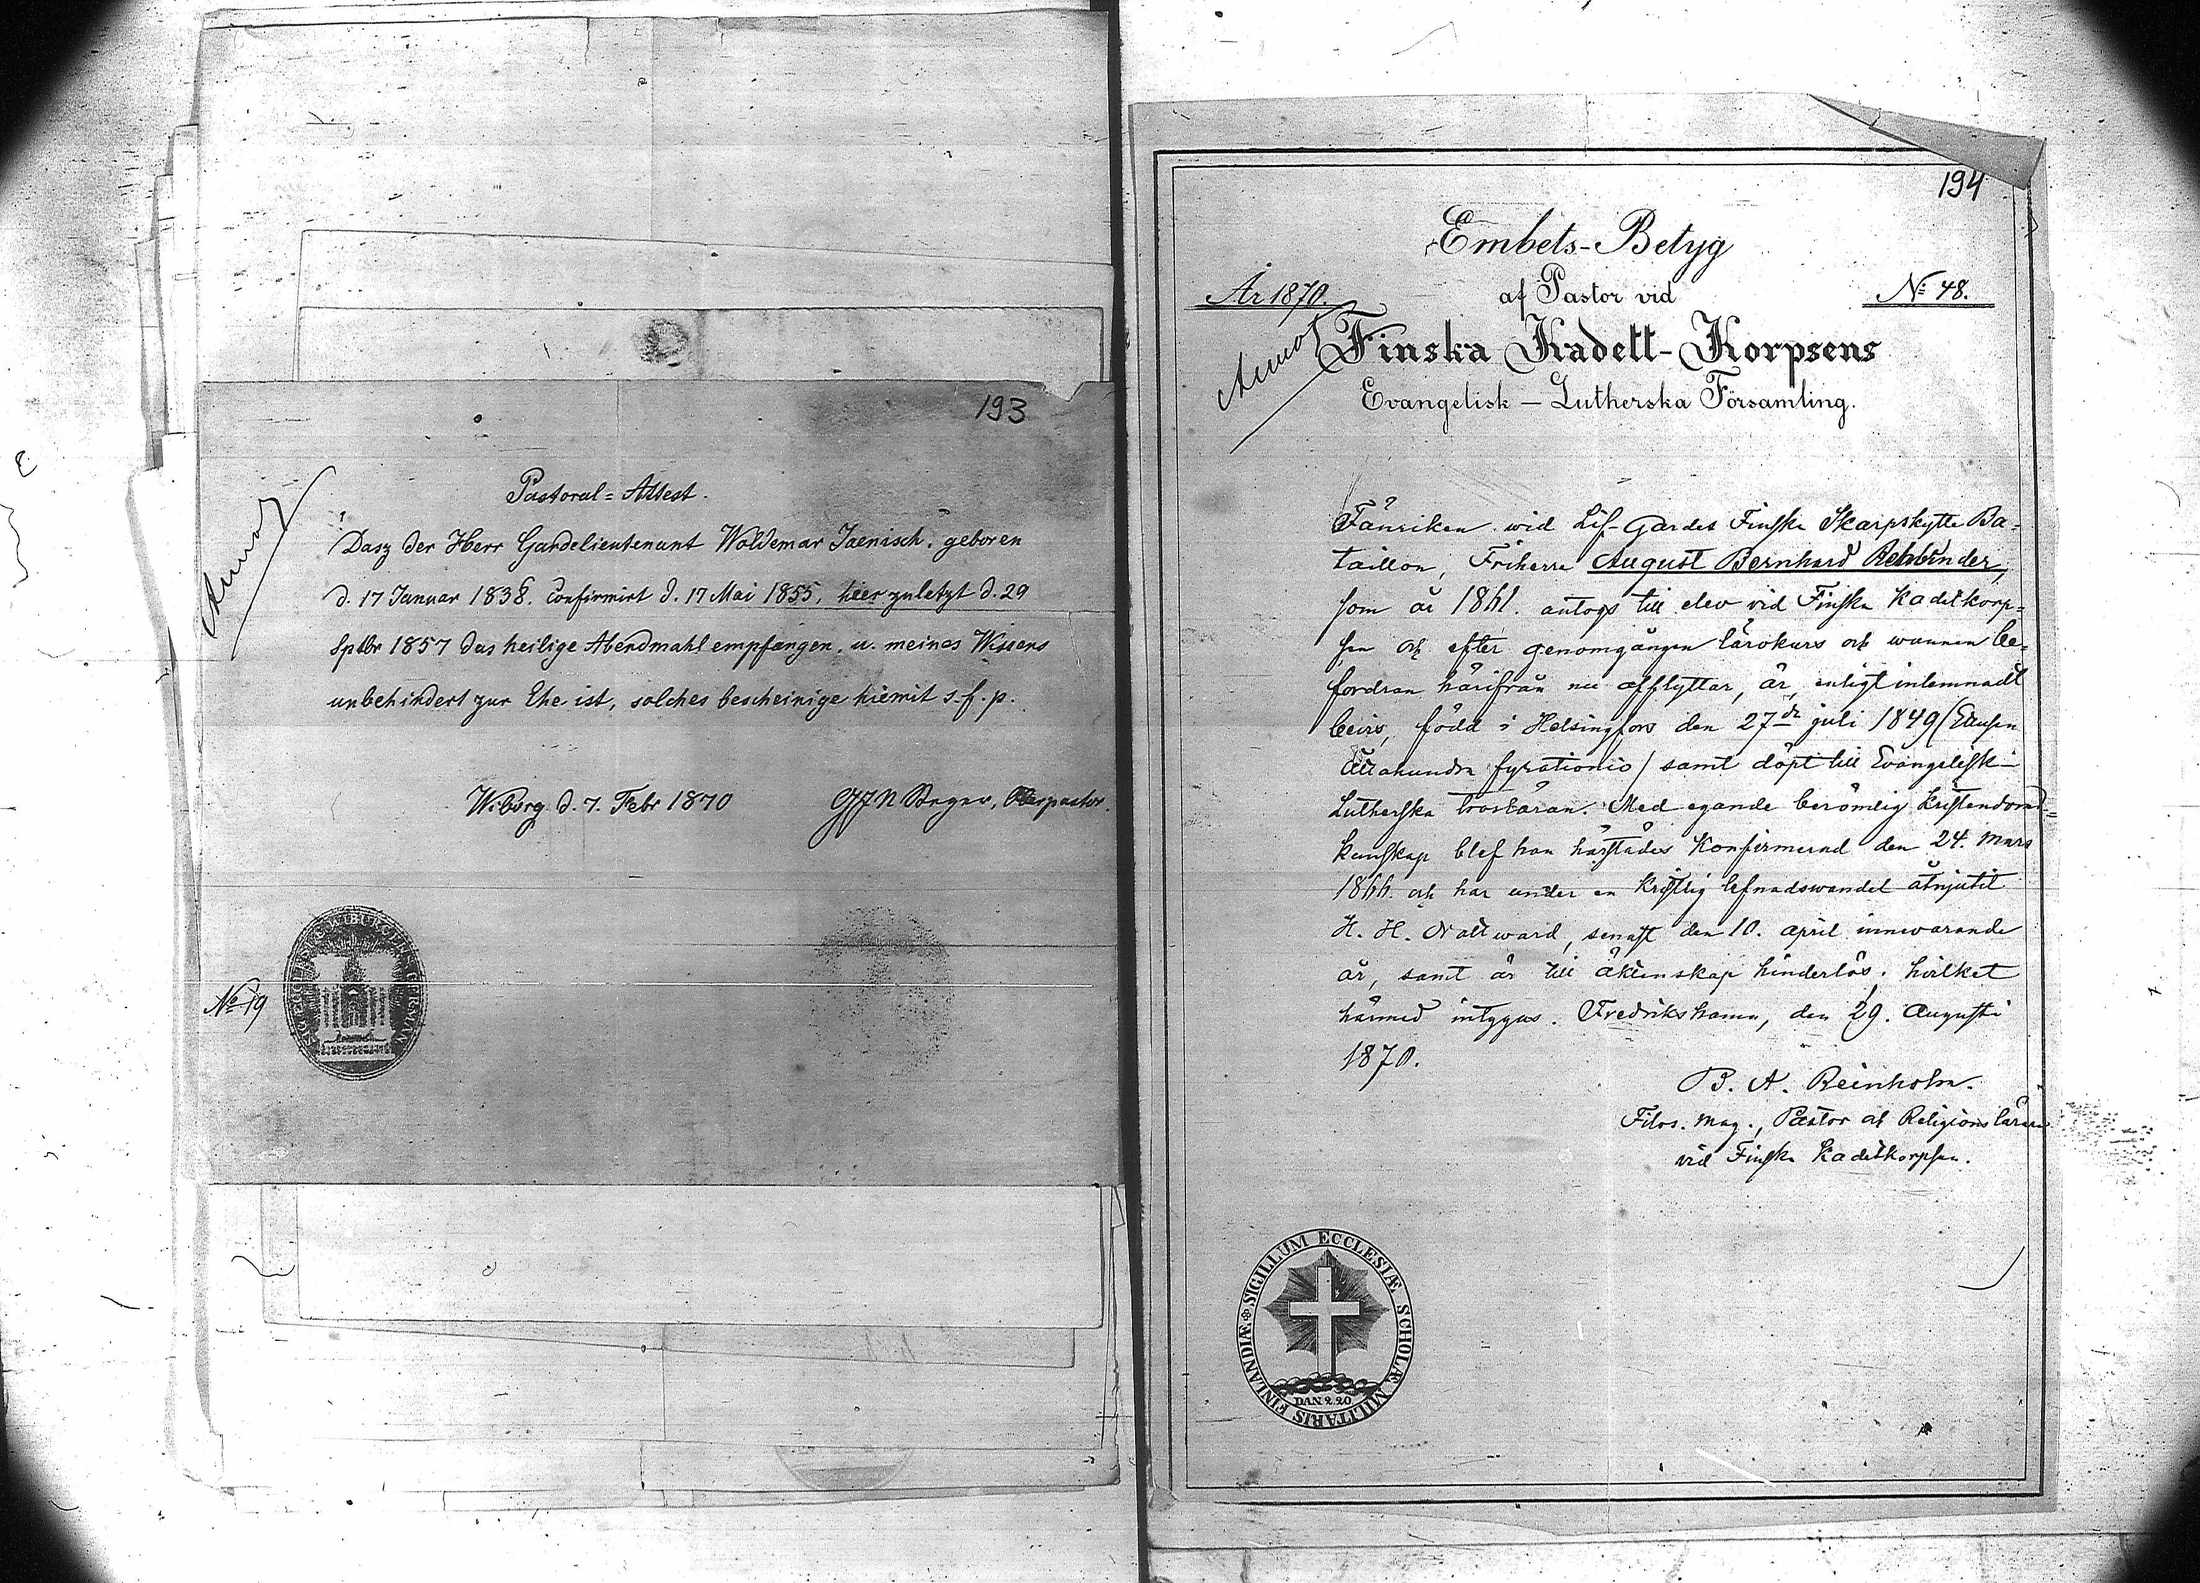 193
Pastoral=Attest.
Dasz der Herr Gardelieutenant Woldemar Jaenisch, geboren
d. 17 Januar 1838, confirmirt d. 17 Mai 1855, hier zuletzt d. 29
Sptbr 1857 das heilige Abendmahl empfangen, u. meines Wissens
unbehindert zur Ehe ist, solches bescheinige hiemit s. f. p.
Wiborg d. 7. Febr 1870 Oberpastor.
No 19
194
Embets-Betyg
År 1870. af Pastor vid No 48.
Finska Kadett-Korpsens
Evangelisk-Lutherska Församling.
Fänriken wid Lif-Gardes Finska Skarpskytte Ba-
taillon, Friherre August Bernhard Rehbinder,
som år 1861. antogs till elev vid Finska Kadettkorp=
sen och efter genomgången lärokurs och wunnen be=
fordran härifrån nu afflyttar, är, enligt inlemnadt
bevis, född i Helsingfors den 27de juli 1849 (Ettusen
åttahundra fyrationio) samt döpt till Evangelisk-
Lutherska trosläran. Med egande berömlig kristendoms=
kunskap blef han härstädes Konfirmerad den 24. Mars
1866. och har under en kristlig lefnadswandel åtnjutit
H. H. Nattward, senast den 10. april innevarande
år, samt är till äktenskap hinderlös; hvilket
härmed intygas. Fredrikshamn, den 29. Augusti
1870.
B. A. Reinholm.
Filos. Mag., Pastor och Religionslärare
vid Finska Kadettkorpsen.
SIGILLUM ECCLESIÆ SCHOLÆ MILITARIS FINLANDIÆ
DAN 2 20